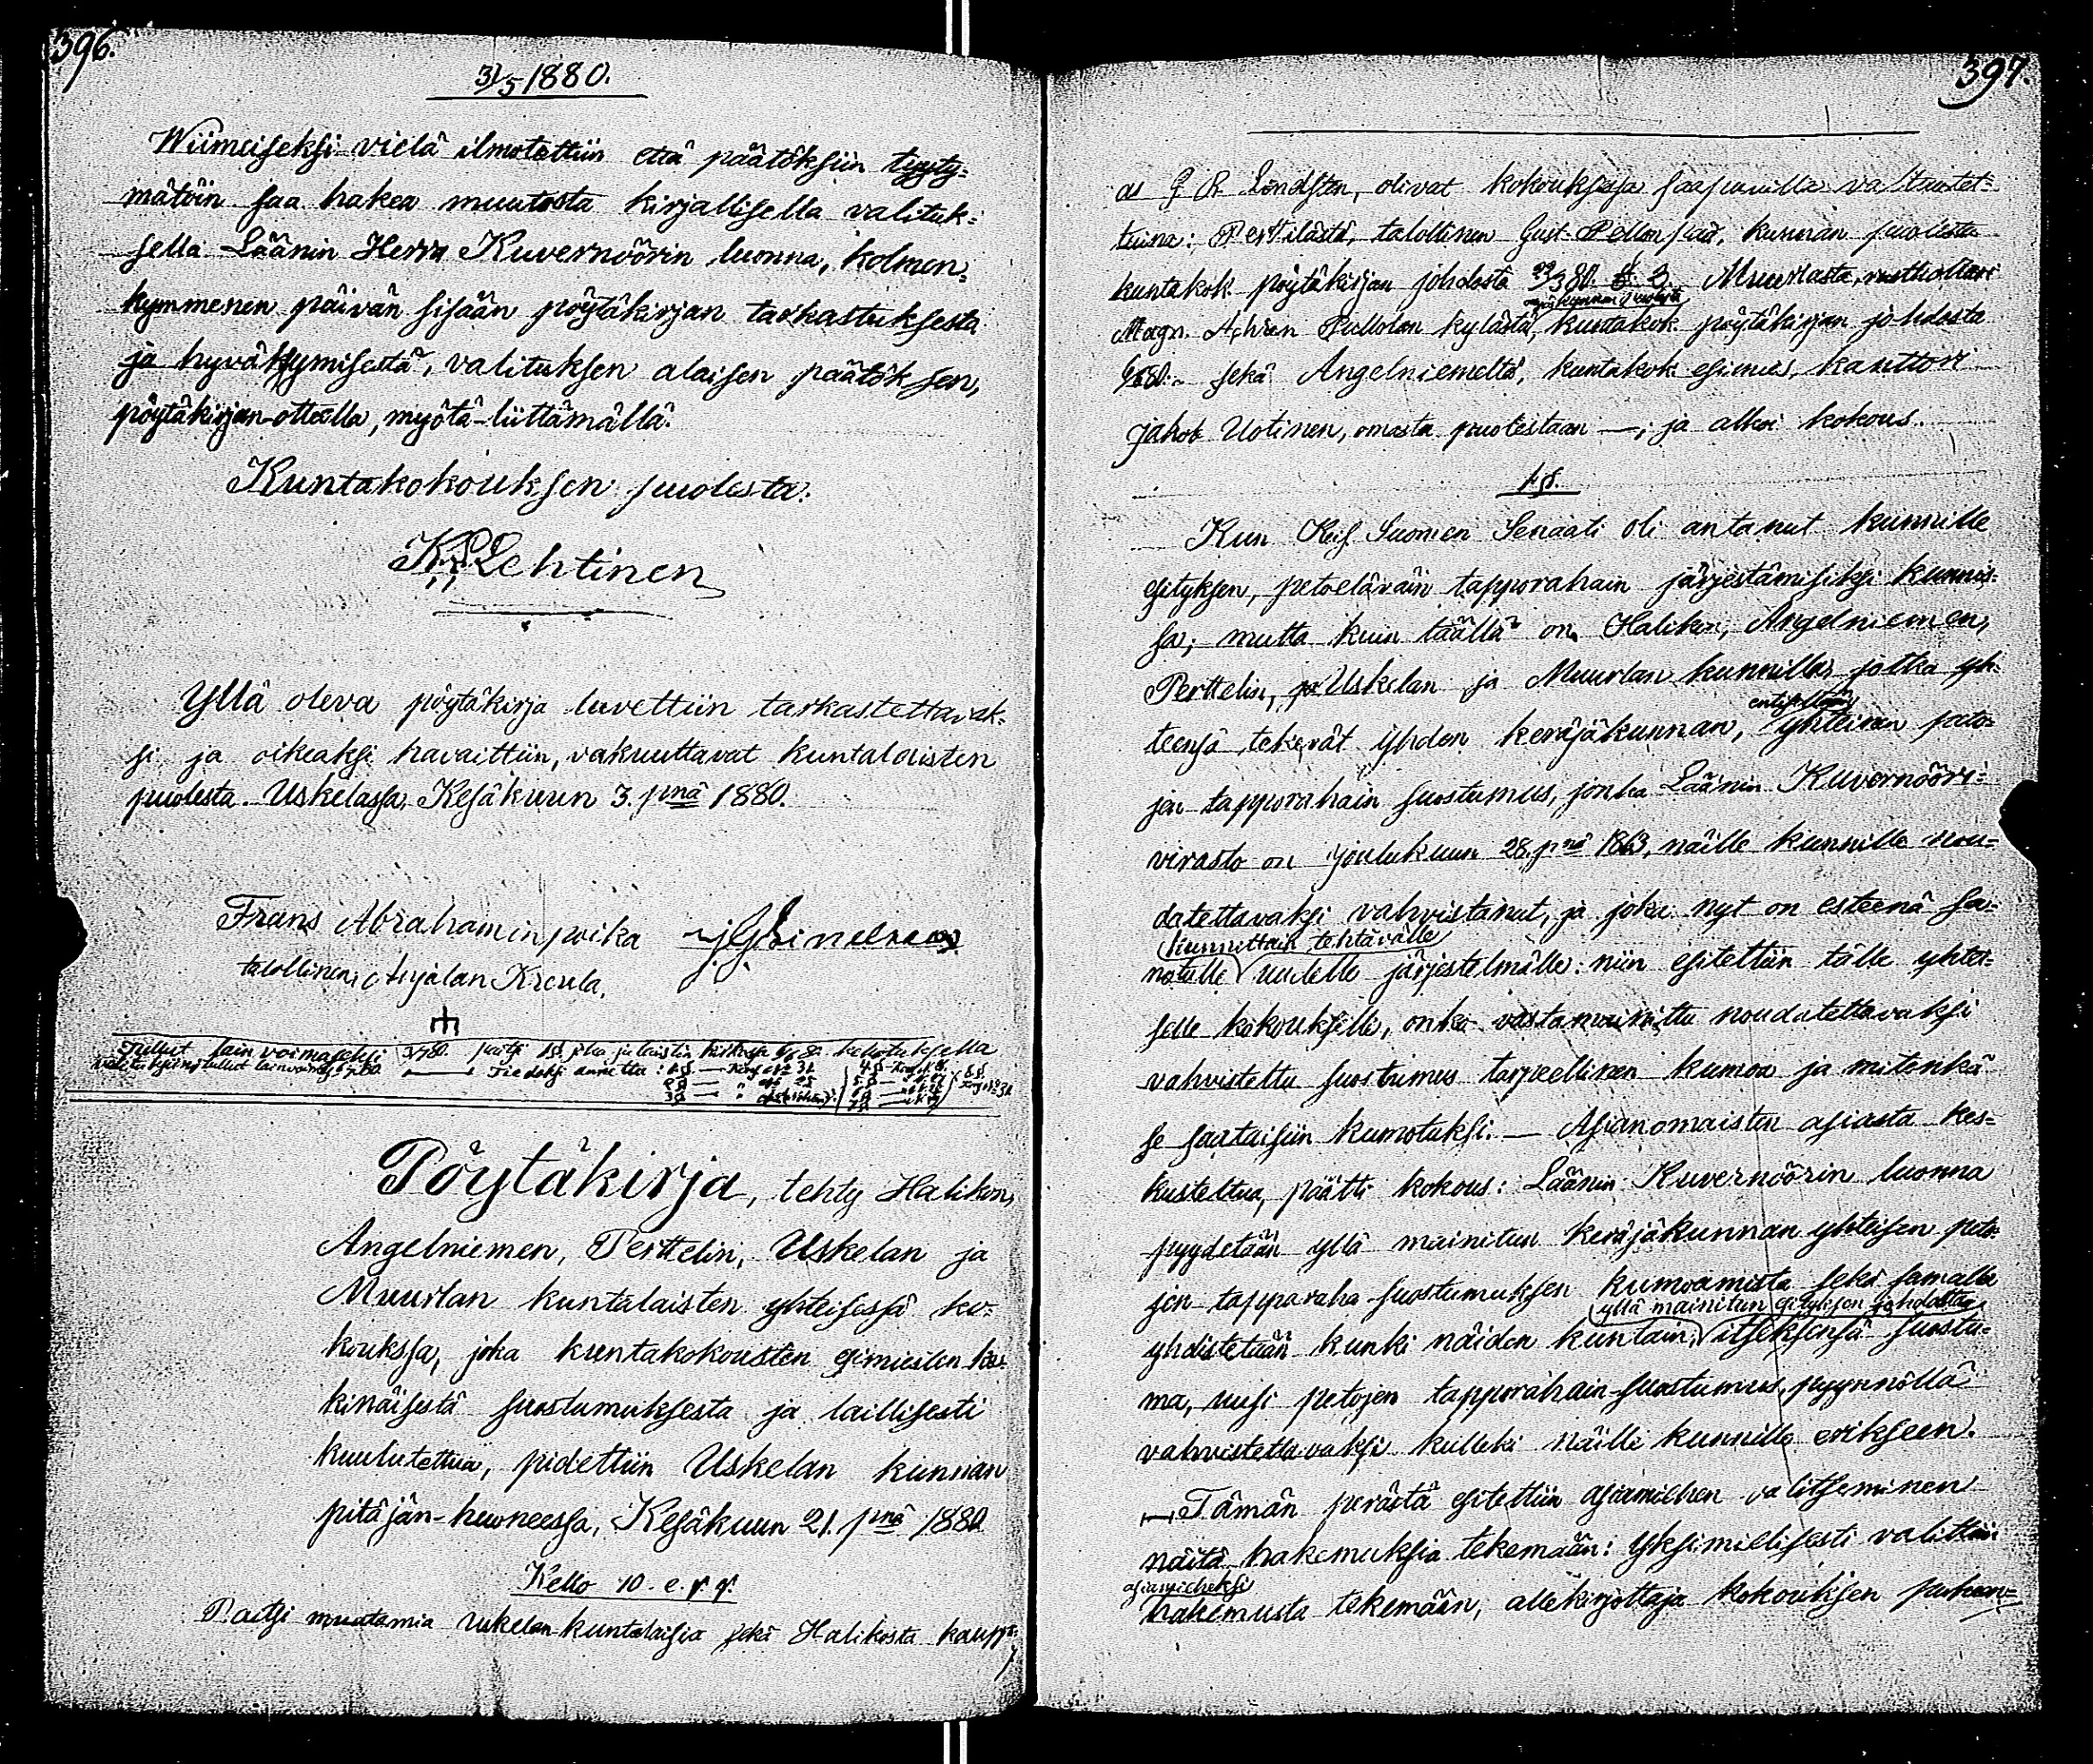 396.
31/5 1880.
Wiimeiseksi vielä ilmotettiin että päätöksiin tyyty-
mätöin saa hakea muutosta kirjallisella valituk-
sella Läänin Herra Kuvernöörin luonna, kolmen-
kymmenen päivän sisään pöytäkirjan tarkastuksesta
ja hyväksymisestä, valituksen alaisen päätöksen,
pöytäkirjan-otteella, myötä-liittämällä.
Kuntakokouksen puolesta:
K. Lehtinen
Yllä oleva pöytäkirja luvettiin tarkastettavak-
si ja oikeaksi havaittiin, vakuuttavat kuntalaisten
puolesta. Uskelassa, Kesäkuun 3. pnä 1880.
Frans Abrahamin poika
talollinen, Kreula.
Tullut lain voimaseksi
Tiedoksi annettu:
Pöytäkirja, tehty Halikon,
Angelniemen, Perttelin, Uskelan ja
Muurlan kuntalaisten yhteisessä ko-
kouksssa, joka kuntakokousten esimiesten
kinäisestä suostumuksesta ja laillisesti
kuulutettua, pidettiin Uskelan kunnan
pitäjän-huoneessa, Kesäkuun 21. pnä 1880
Kello 10. e. p. p.
Paitsi muutamia Uskelan kuntalaisia sekä Halikosta kaupp-
397.
olivat kokouksessa saapuvilla valtuutet-
tuina: Perttilästä, talollinen Gust. kunnan puolesta
kuntakok. pöytäkirjan johdosta Muurlasta,
Magn. kylästä, kuntakok. pöytäkirjan johdosta
sekä Angelniemeltä, kuntakok. esimies, kanttori
Jakob Uotinen, omasta puolestaan —; ja alkoi kokous.
1. §.
Kun Keis. Suomen Senaati oli antanut kunnille
esityksen, petoeläväin tapporahain järjestämiseksi kunnis-
sa; mutta kuin täällä on Halikon, Angelniemen,
Perttelin, Uskelan ja Muurlan kunnilla, jotka yh-
teensä tekevät yhden keräjäkunnan, yhteinen peto-
jen tapporahain suostumus, jonka Läänin Kuvernööri-
virasto on Joulukuun 28. pnä 1863, näille kunnille nou-
datettavaksi vahvistanut, ja joka nyt on esteenä sa-
kunnittain tehtävälle
notulle uudelle järjestelmälle: niin esitettiin tälle yhtei-
selle kokoukselle, onko vastamainittu noudatettavaksi
vahvistettu suostumus tarpeellinen kumoa ja mitenkä
se saataisiin kumotuksi. — Asianomaisten asiasta kes-
kusteltua, päätti kokous: Läänin Kuvernöörin luonna
pyydetään yllä mainitun keräjäkunnan yhteisen peto-
jen tapparaha-suostumuksen kumoamista sekä samalla
yllä mainitun esityksen johdosta
yhdistetään kunki näiden kuntain, itseksensä suostu-
ma, uusi petojen tapporahain-suostumus, pyynnöllä
vahvistettavaksi kulleki näille kunnille erikseen.
— Tämän perästä esitettiin asiamiehen valitseminen
näitä hakemuksia tekemään: Yksimielisesti valittiin
asiamieheksi
hakemusta tekemään, allekirjottaja kokouksen puheen-